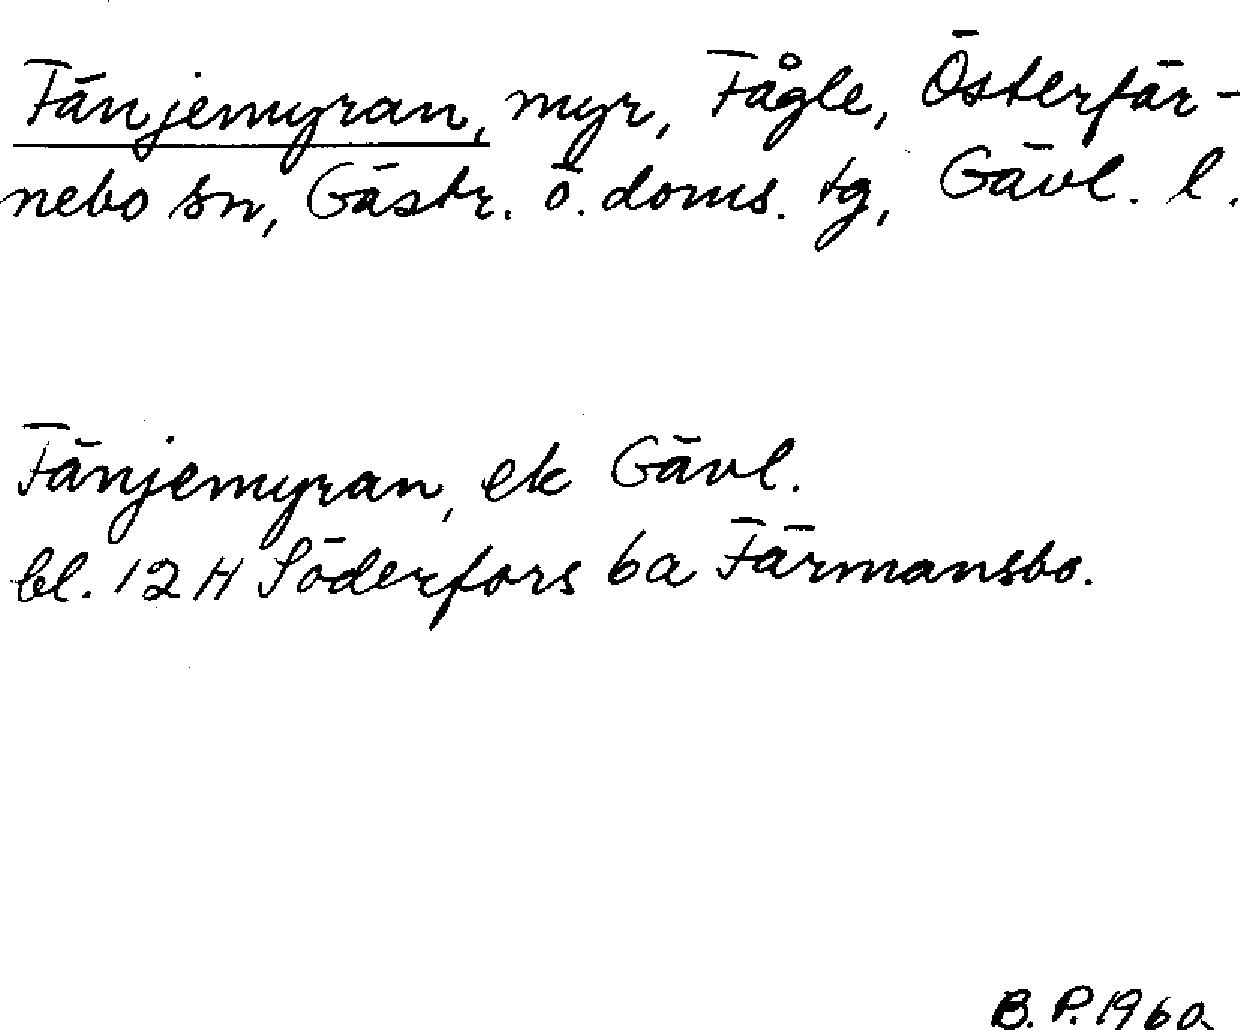 Fänjemyran, myr, Fågle, Österfär-
nebo sn, Gästr. ö. doms. tg, Gävl. l.
Fänjemyran, ek Gävl.
bl. 12 H Söderfors 6a Färmansbo.
B. P. 1960